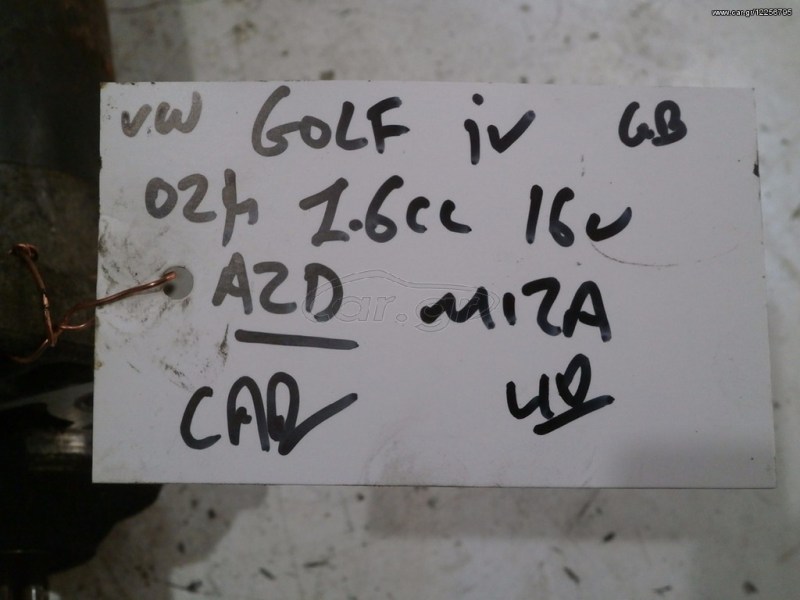 www.car.gr/12256705
VW GOLF iv GB
02μ 1.6cc 16v
AZD MIZA
car.gr
40